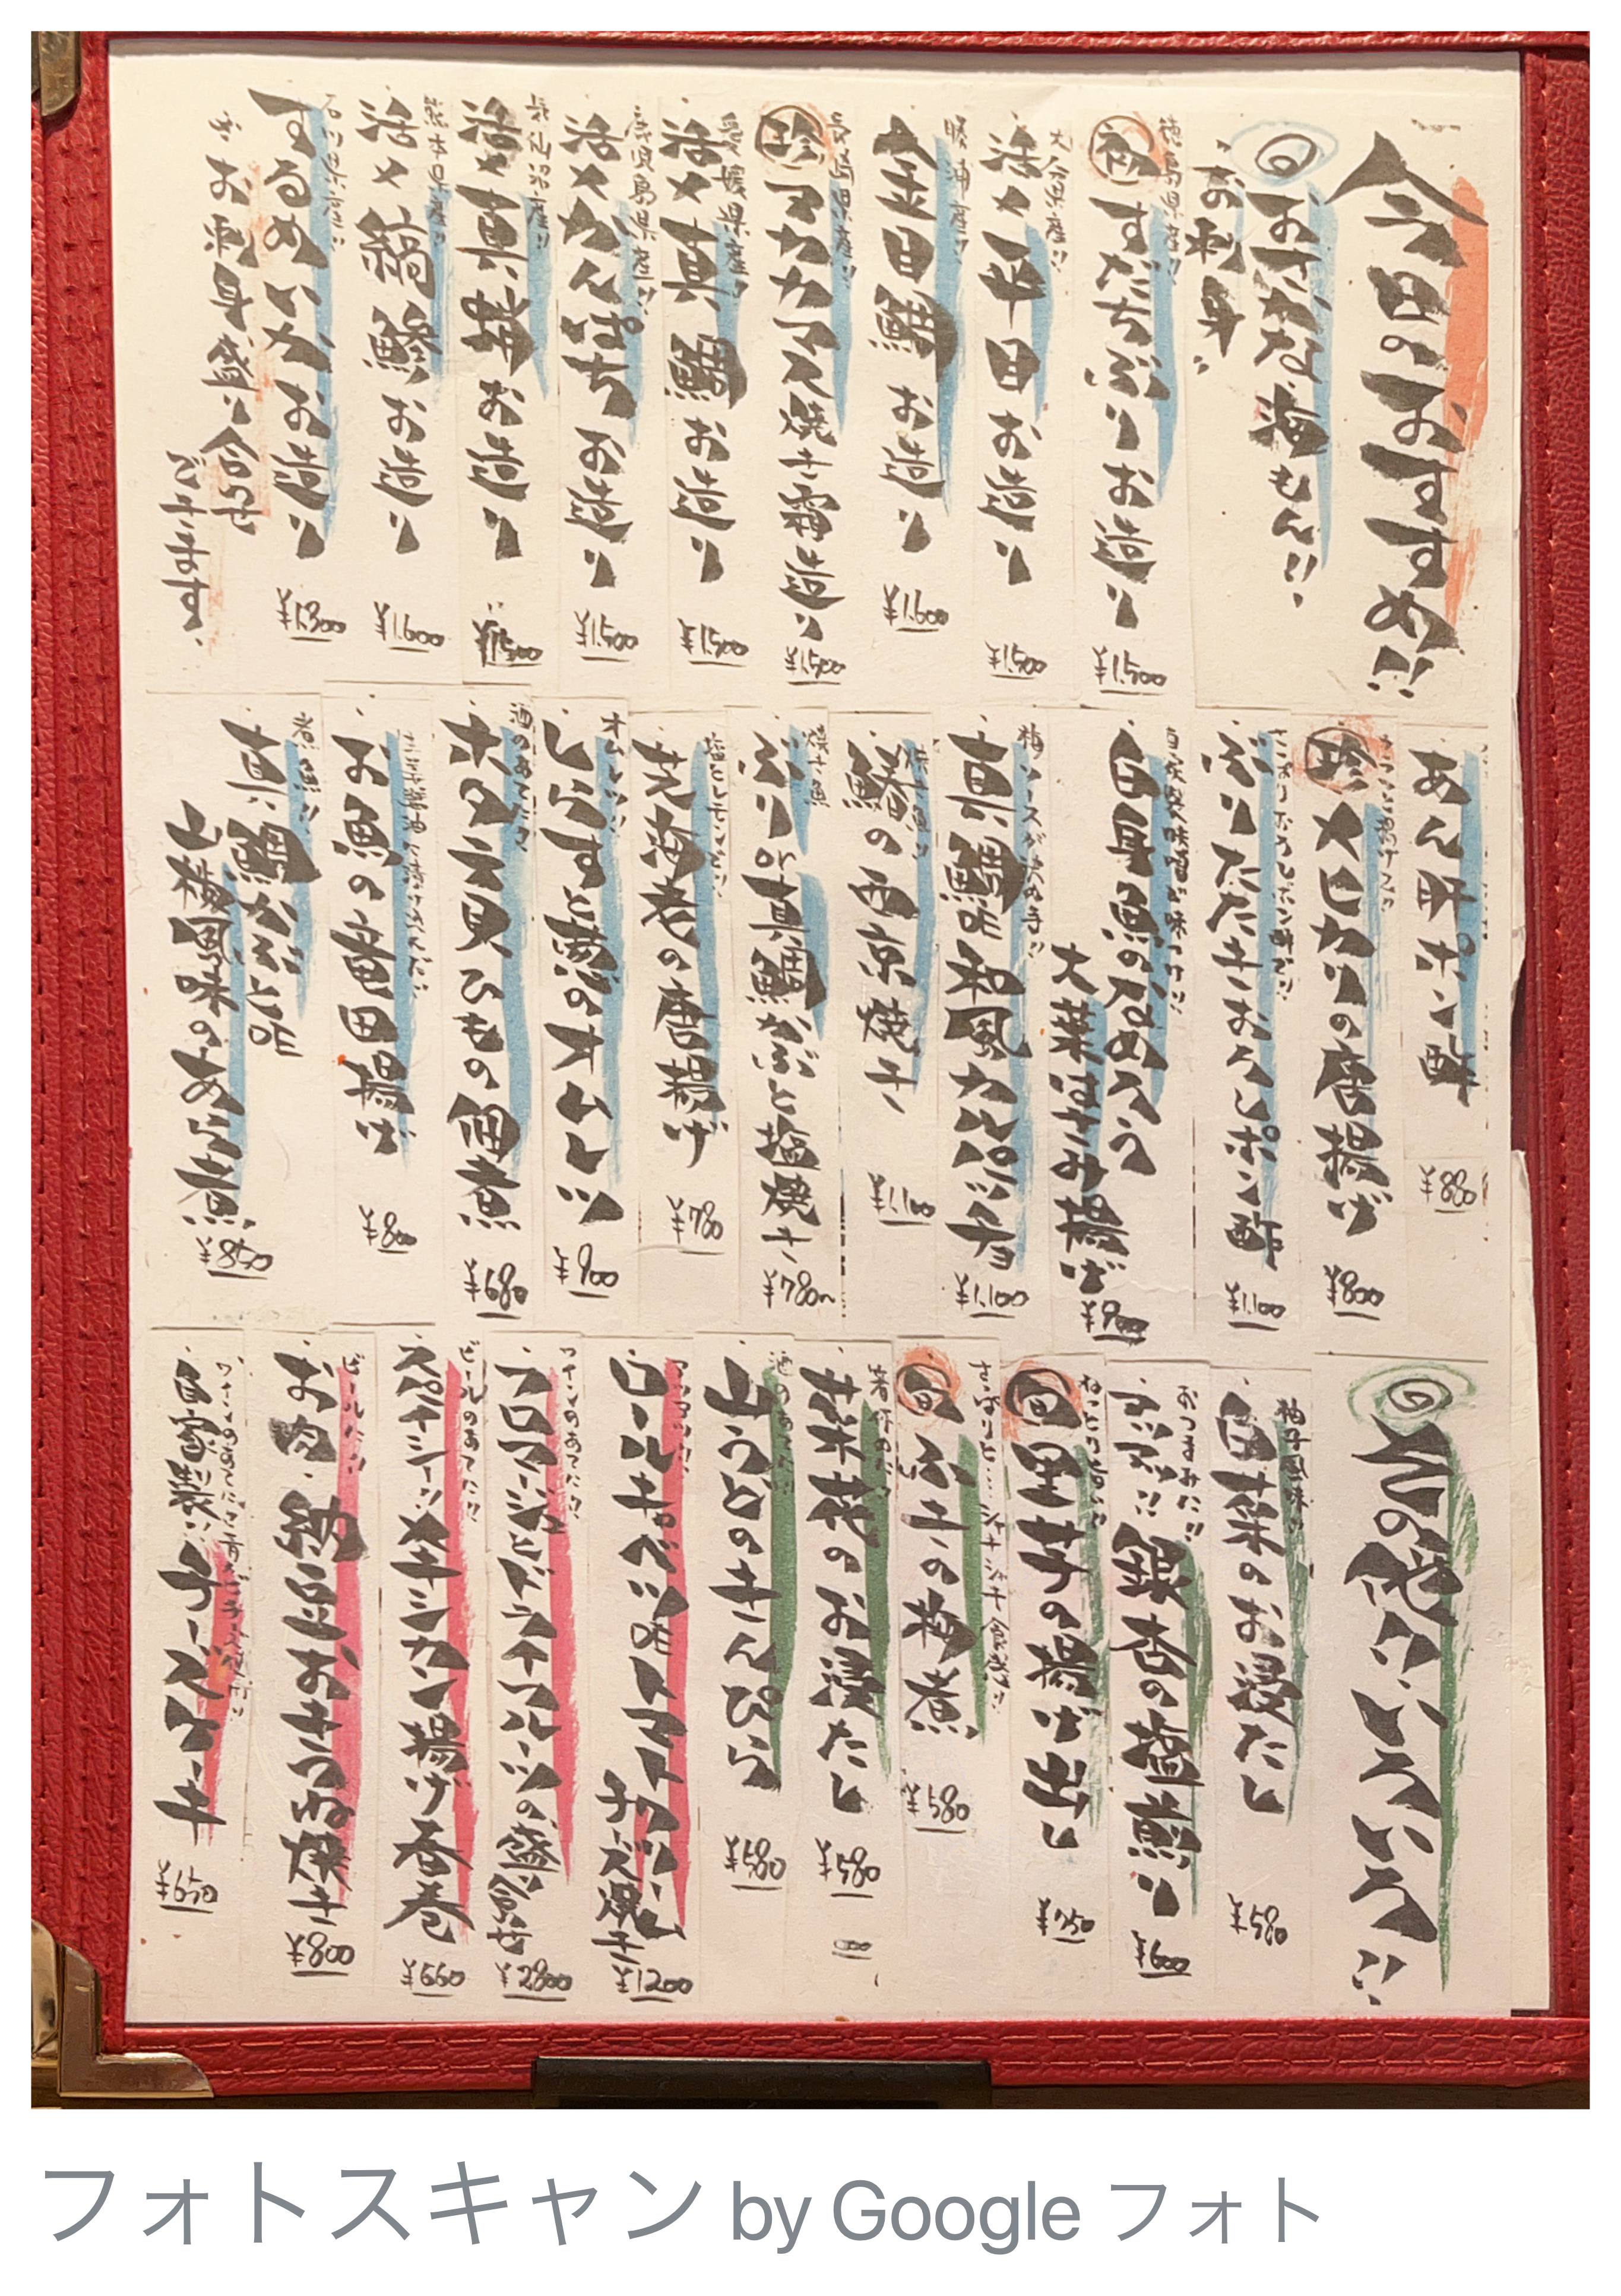 今日のおすすめ!!
◎おさかな海もん!!
・お刺身・
徳島県産!!
すだちぶりお造り
¥1,500
大分県産!!
活〆平目お造り
¥1,500
勝浦産!!
金目鯛お造り
¥1,600
長崎県産!!
珍アカカマス焼き霜造り
¥1,500
愛媛県産!!
活〆真鯛お造り
¥1,500
鹿児島県産!!
活〆かんぱちお造り
¥1,500
活〆真鯵お造り
¥1,500
熊本県産!!
活〆縞鯵お造り
¥1,600
石川県産!!
するめいかお造り
¥1,300
※お刺身盛り合せ
できます。
あん肝ポン酢
¥880
珍メヒカリの唐揚げ
¥800
さっぱりおろしポン酢で!!
ぶりたたきおろしポン酢
¥1,100
自家製味噌で味つけ!!
白身魚のなめろう
大葉はさみ揚げ
¥900
梅ソースが決め手!!
真鯛の和風カルパッチョ
¥1,100
焼き魚!!
鰆の西京焼き
¥1,100
焼き魚
ぶりor真鯛かぶと塩焼き
¥780〜
塩とレモンで!!
芝海老の唐揚げ
¥780
オムレツ!!
しらすと葱のオムレツ
¥900
酒のあてに!!
ホタテ貝ひもの佃煮
¥680
お魚の竜田揚げ
¥800
煮魚!!
真鯛かぶとの
山椒風味のあら煮
¥850
◎その他いろいろ!!
柚子風味!!
白菜のお浸たし
¥580
おつまみに!!
銀杏の塩煎り
¥600
旬里芋の揚げ出し
¥750
さっぱりと…シャキシャキ食感!!
旬ふきの梅煮
¥580
箸休めに!!
菜花のお浸たし
¥580
酒のあてに!!
山うどのきんぴら
¥580
アツアツ!!
ロールキャベツのトマトソース
チーズ焼き
¥1200
ワインのあてに!!
フロマージュとドライフルーツの盛合せ
¥2800
ビールのあてに!!
スパイシー!!メキシカン揚げ春巻
¥660
ビールに!!
お肉・納豆おきつね焼き
¥800
自家製!!チーズケーキ
¥650
フォトスキャン by Google フォト